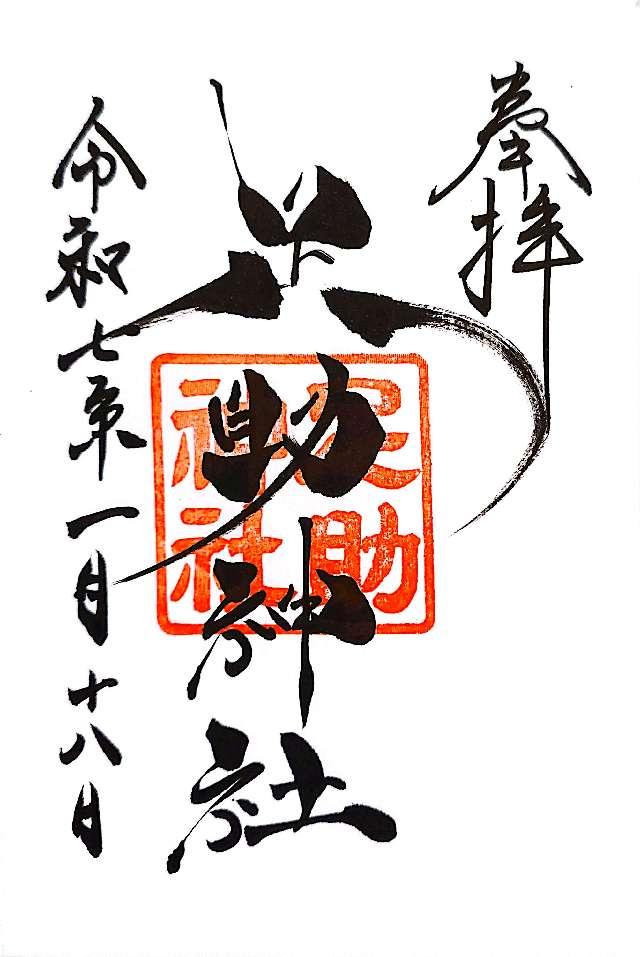 奉拝
足助神社
足助
神社
令和七年一月十八日